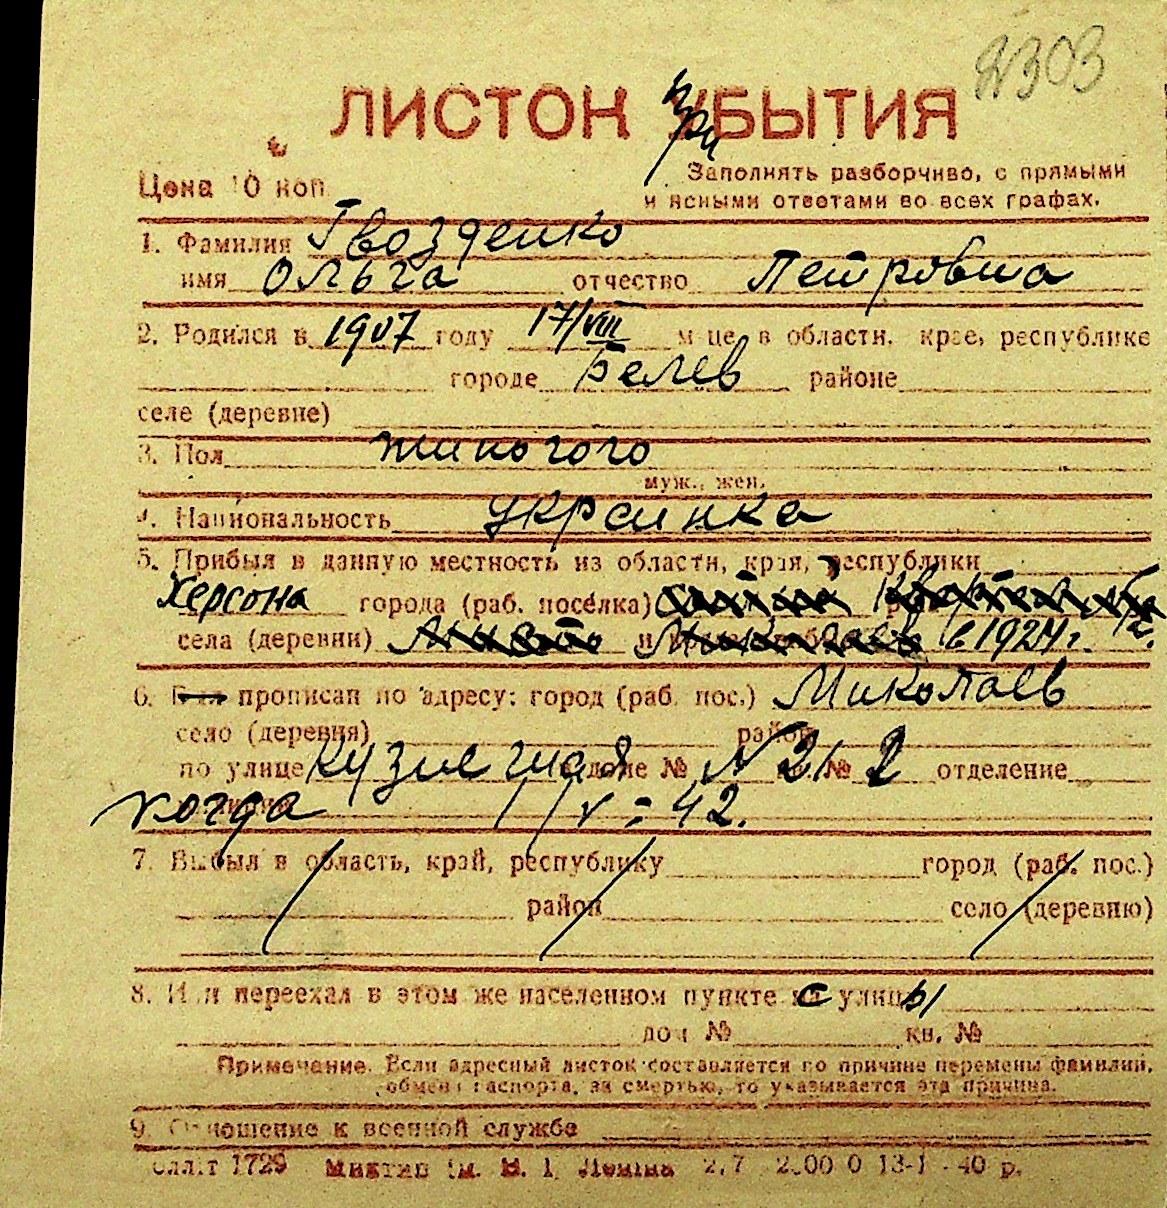 2303
ЛИСТОК при БЫТИЯ
Цена 10 коп
Заполнять разборчиво, с прямыми
и ясными ответами во всех графах.
1. Фамилия Гвозденко
имя Ольга отчество Петровна
2. Родился в 1907 году 17/VIII м-це, в области, крае, республике
городе Белев районе
селе (деревне)
3. Пол
муж., жен.
4. Национальность украинка
5. Прибыл в данную местность из области, края, республики
Херсона города (раб. поселка)
села (деревни) в 1924 г.
6. прописан по адресу: город (раб. пос.) Николаев
село (деревня) район
по улице Кузнечная доме № N 21 кв. № 2 отделение
когда 1/V - 42.
7. Выбыл в область, край, республику город (раб. пос.)
район село (деревню)
8. Или переехал в этом же населенном пункте с улицы
дом № кв. №
Примечание. Если адресный листок составляется по причине перемены фамилии,
обмена паспорта, за смертью, то указывается эта причина.
9. Отношение к военной службе
1729 им. В. И. Ленина 40 р.